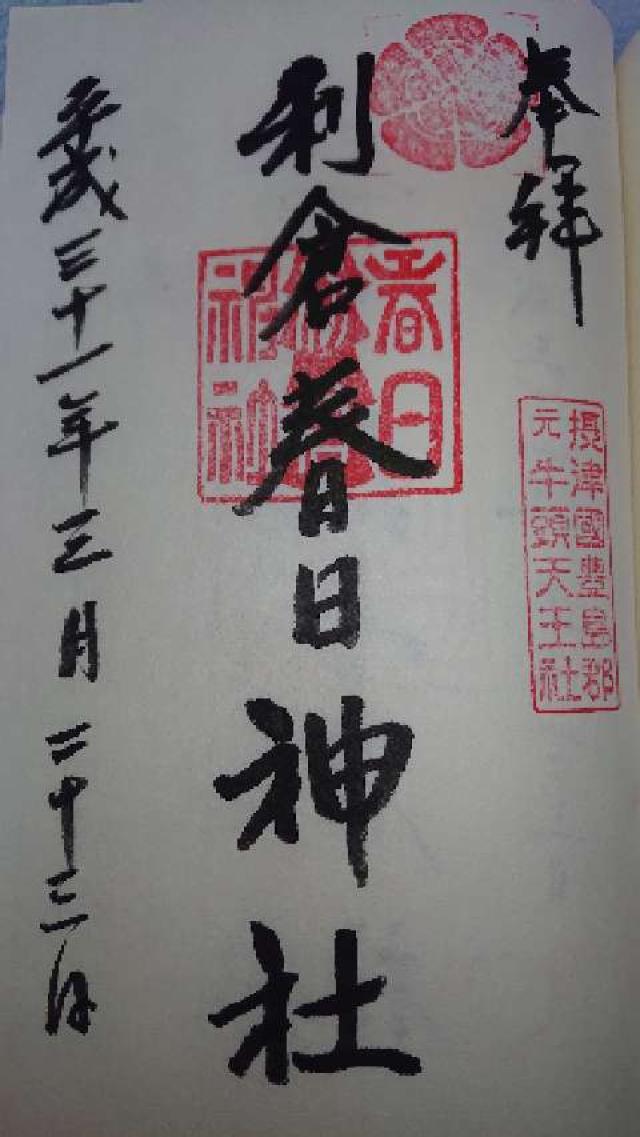 奉拝
摂津國豊島郡
元牛頭天王社
利倉春日神社
春日
神社
平成三十一年三月二十三日